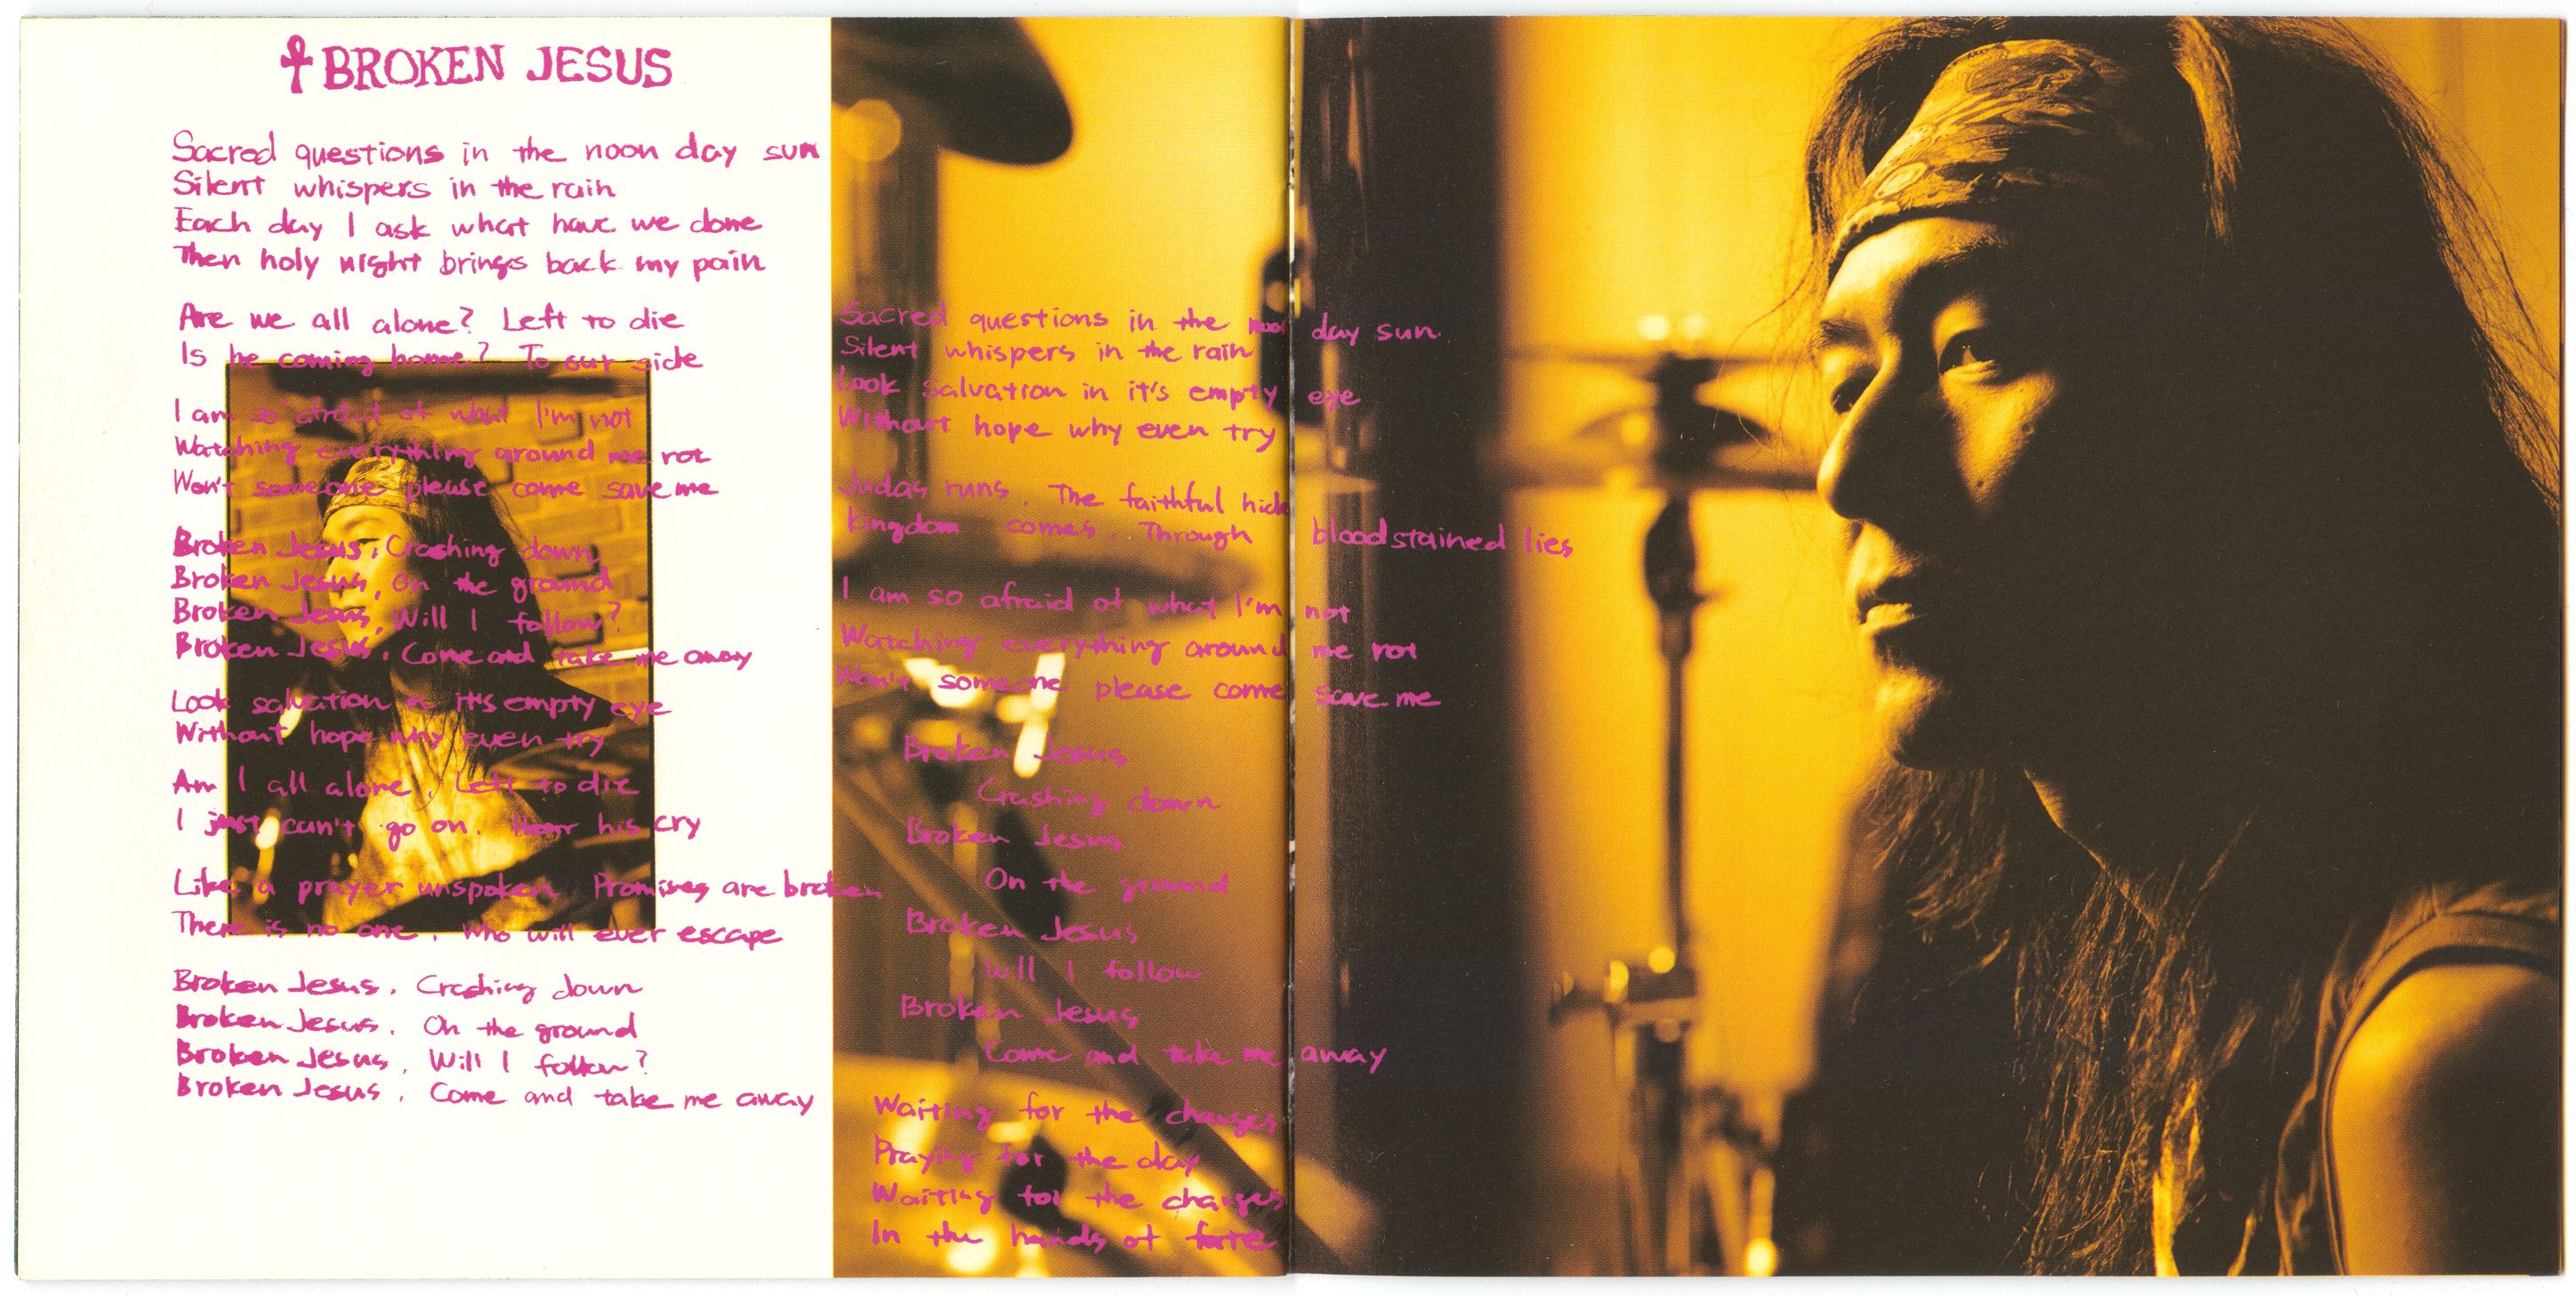 BROKEN JESUS
Sacred questions in the noon day sun
Silent whispers in the rain
Each day I ask what have we done
Then holy night brings back my pain
Are we all alone? Left to die
Is he coming home? To our side
I am so afraid of what I'm not
Watching everything around me rot
Won't someone please come save me
Broken Jesus, Crashing down
Broken Jesus, On the ground
Broken Jesus, Will I follow?
Broken Jesus, Come and take me away
Look salvation in it's empty eye
Without hope why even try
Am I all alone. Left to die
I just can't go on. Hear his cry
Like a prayer unspoken Promises are broken
There is no one. Who will ever escape
Broken Jesus. Crashing down
Broken Jesus. On the ground
Broken Jesus, Will I follow?
Broken Jesus, Come and take me away
Sacred questions in the noon day sun
Silent whispers in the rain
Look salvation in it's empty eye
Without hope why even try
Judas runs. The faithful hide
kingdom comes. Through bloodstained lies
I am so afraid of what I'm not
Watching everything around me rot
Won't someone please come save me
Broken Jesus
Crashing down
Broken Jesus
On the ground
Broken Jesus
Will I follow
Broken Jesus
Come and take me away
Waiting for the changes
Praying for the day
Waiting for the changes
In the hands of fate